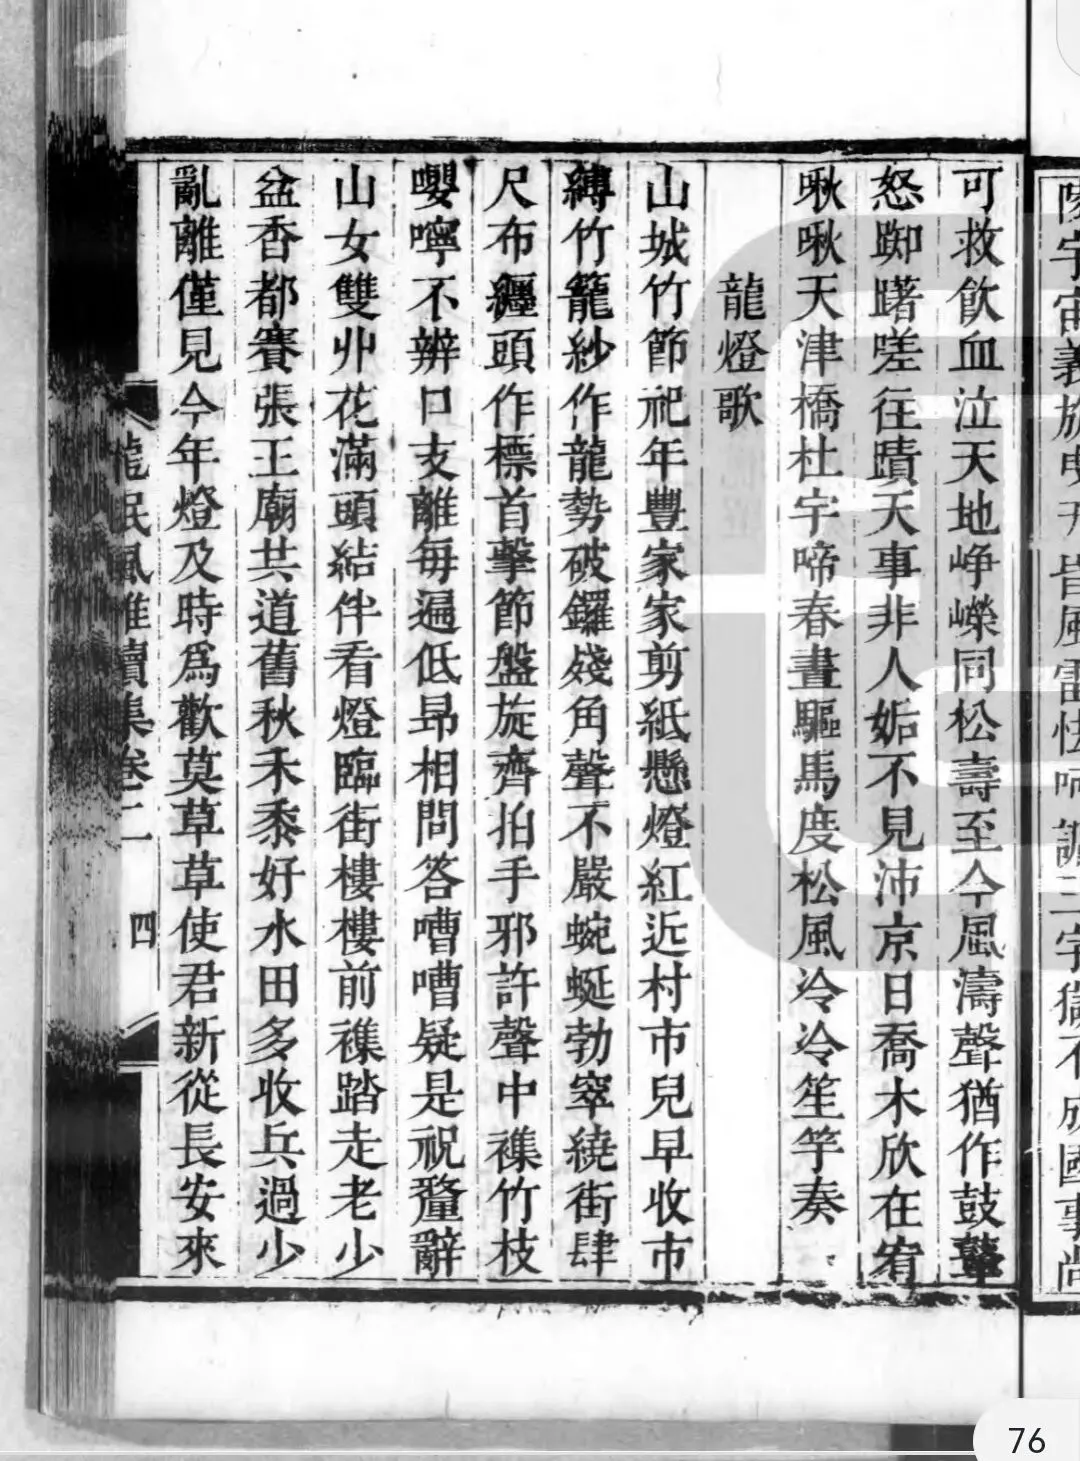 可救飲血泣天地崢嶸同松壽至今風濤聲猶作鼓鼙
怒踟躇嗟往蹟天事非人姤不見沛京日喬木欣在宥
啾啾天津橋杜宇啼春晝驅馬度松風泠泠笙竽奏
龍燈歌
山城竹節祀年豐家家剪紙懸燈紅近村市兒早收市
縛竹籠紗作龍勢破鑼殘角聲不嚴蜿蜒勃窣繞街肆
尺布纒頭作標首擊節盤旋齊拍手邪許聲中襍竹枝
嚶嚀不辨口支離每遍低昻相問答嘈嘈疑是祝釐辭
山女雙丱花滿頭結伴看燈臨街樓樓前襍踏走老少
盆香都賽張王廟共道舊秋禾黍好水田多收兵過少
亂離僅見今年燈及時爲歡莫草草使君新從長安來
龍眠風雅續集卷二
四
76